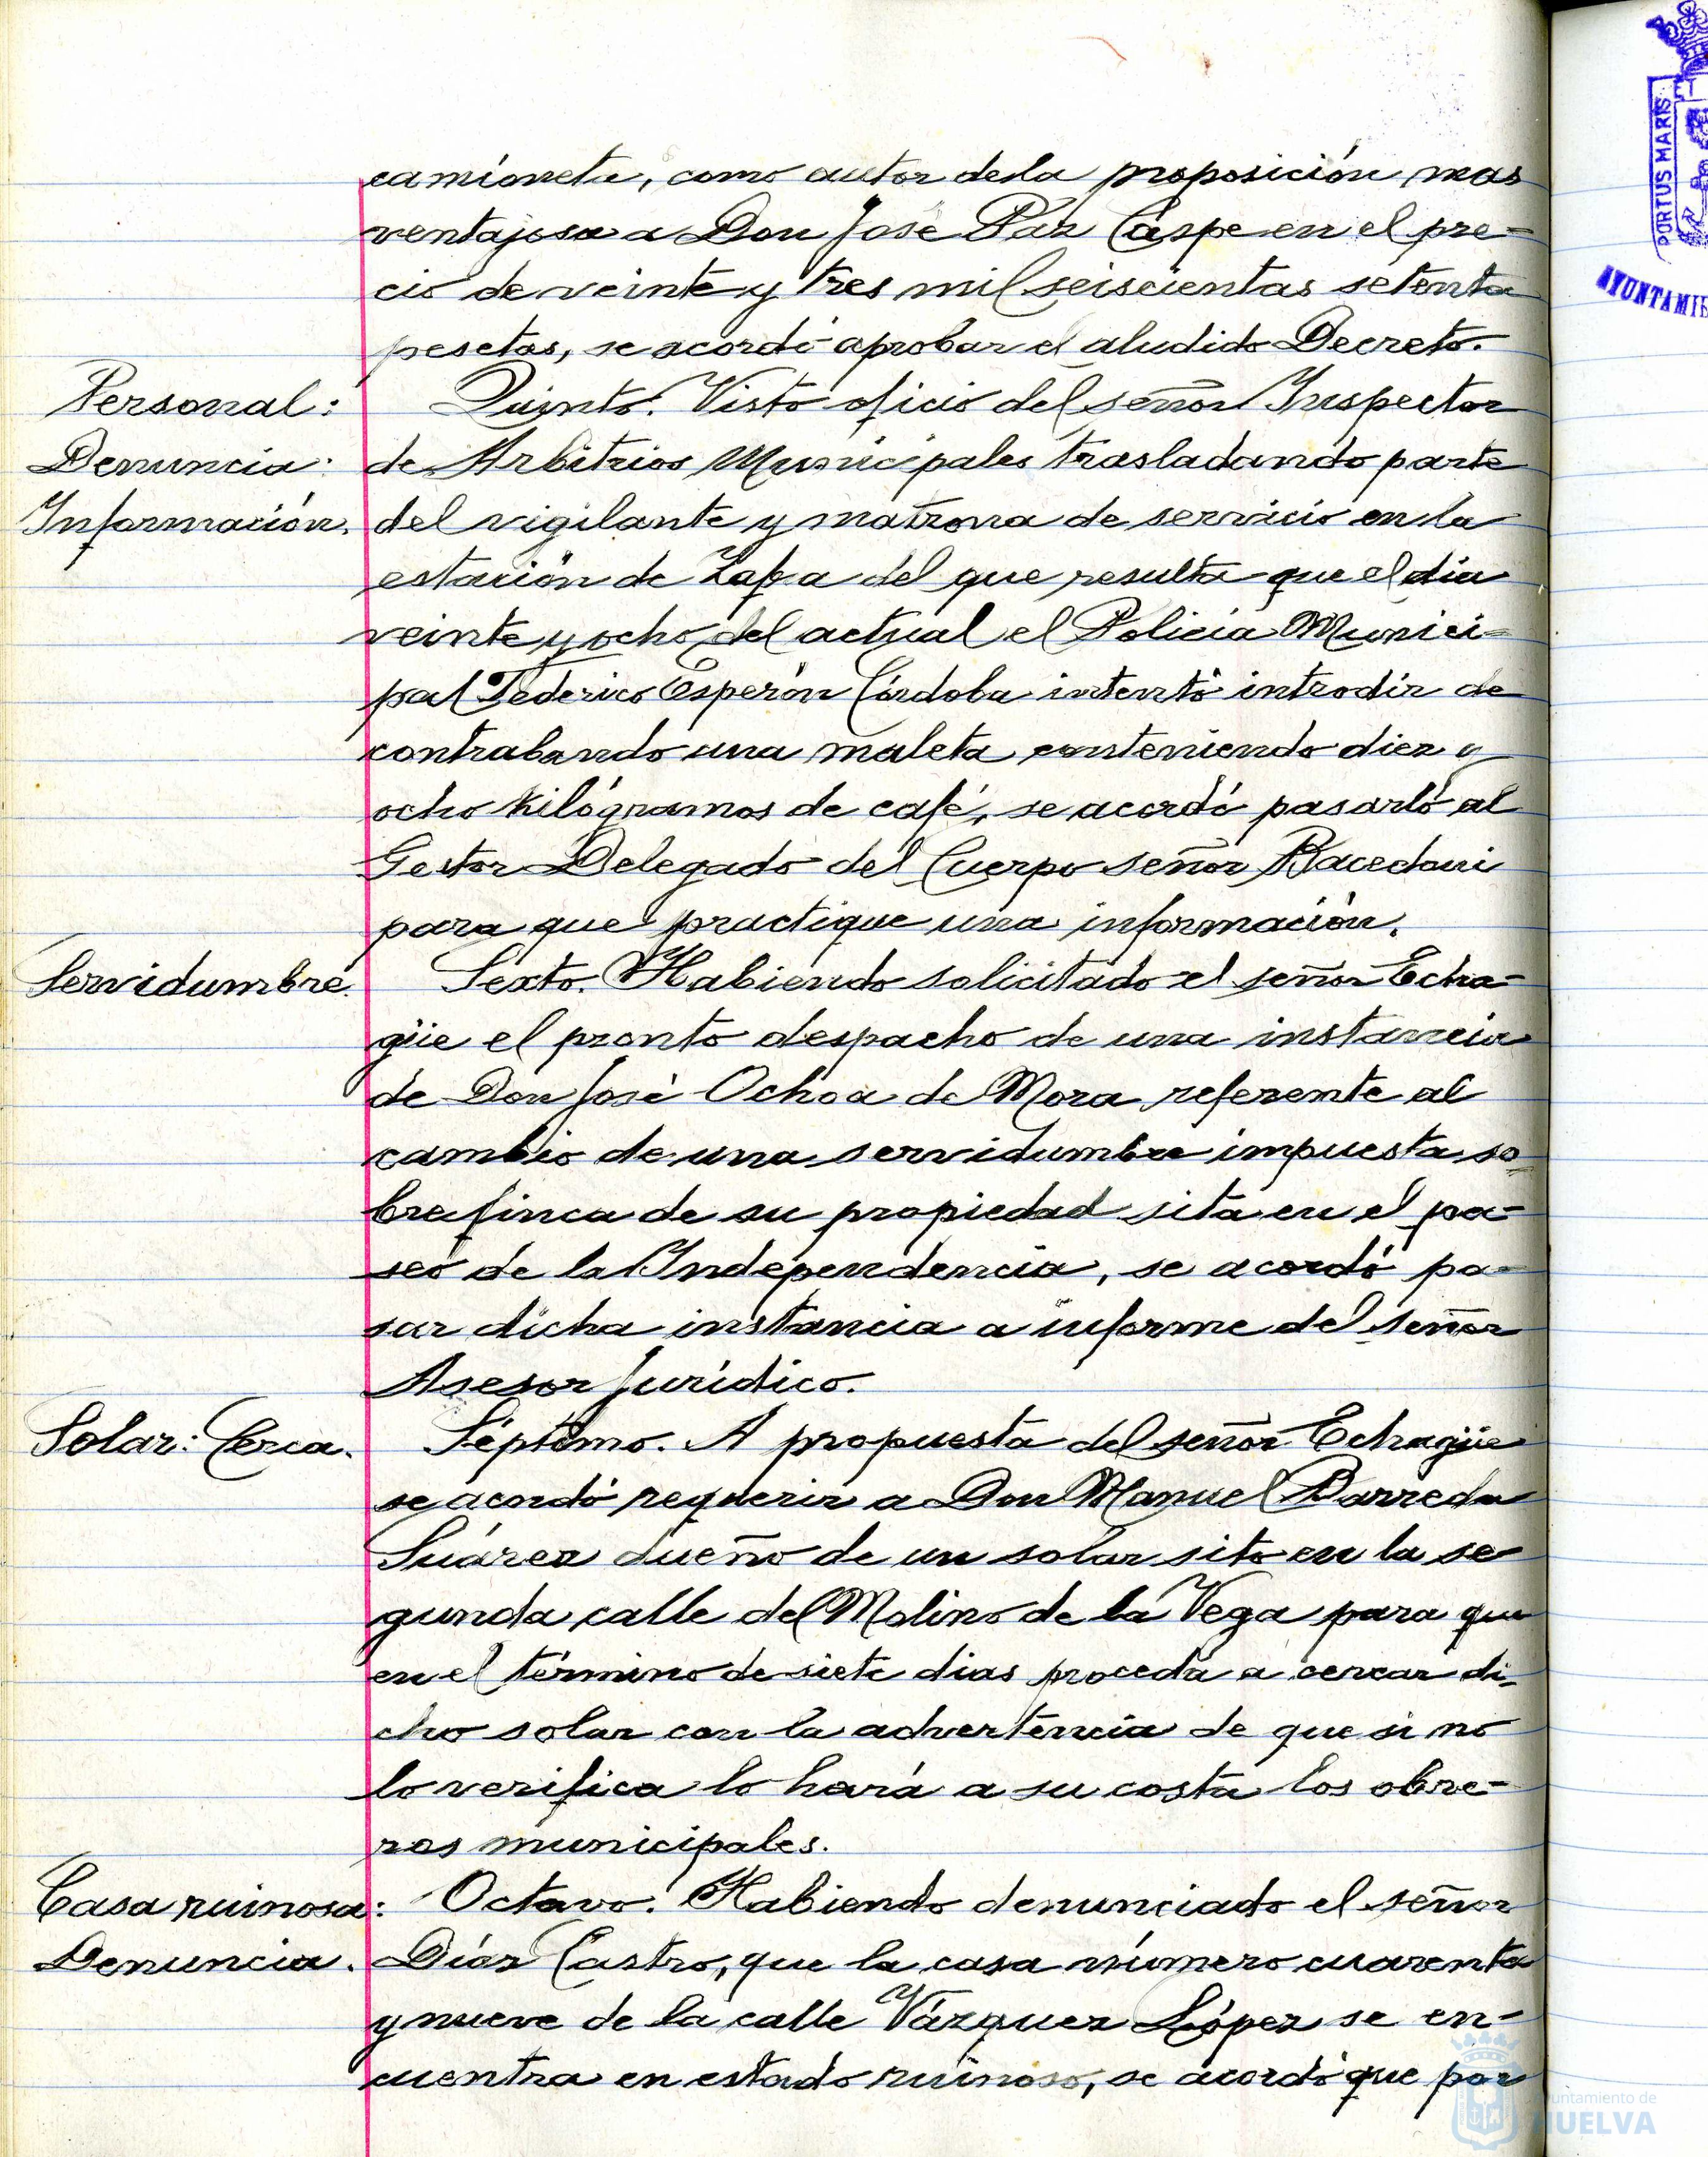 camioneta, como autor de la proposición mas
ventajosa a Don José Paz Caspe en el pre-
cio de veinte y tres mil seiscientas setenta
pesetas, se acordó aprobar el aludido Decreto.
Personal: Quinto. Visto oficio del señor Inspector
Denuncia: de Arbitrios Municipales trasladando parte
Información. del vigilante y matrona de servicio en la
estación de Zafra del que resulta que el dia
veinte y ocho del actual el Policía Munici-
pal Federico Esperón Córdoba intentó introdir de
contrabando una maleta conteniendo diez y
ocho kilógramos de café, se acordó pasarló al
Gestor Delegado del Cuerpo señor
para que practique una información.
Servidumbre. Sexto. Habiendo solicitado el señor Echa-
güe el pronto despacho de una instancia
de Don José Ochoa de Mora referente al
cambio de una servidumbre impuesta so
bre finca de su propiedad sita en el pa-
seo de la Independencia, se acordó pa-
sar dicha instancia a informe del señor
Asesor Jurídico.
Solar: Cerca. Séptimo. A propuesta del señor Echagüe
se acordó requerir a Don Manuel Barreda
Suárez dueño de un solar sito en la se
gunda calle del Molino de la Vega para que
en el término de siete dias proceda a cercar di-
cho solar con la advertencia de que si no
lo verifica lo hará a su costa los obre-
ros municipales.
Casa ruinosa: Octavo. Habiendo denunciado el señor
Denuncia. Díaz Castro, que la casa número cuarenta
y nueve de la calle Vázquez López se en-
cuentra en estado ruinoso, se acordó que por
PORTUS MARIS
AYUNTAMIE
Ayuntamiento de
HUELVA